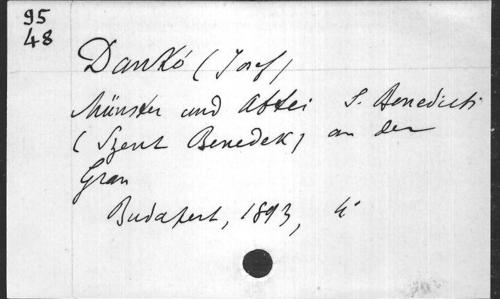 95
48
Dankó (Josef)
Münster und Abtei S. Benedicti
(Szent Benedek) an der
Gran
Budapest, 1893, 4°